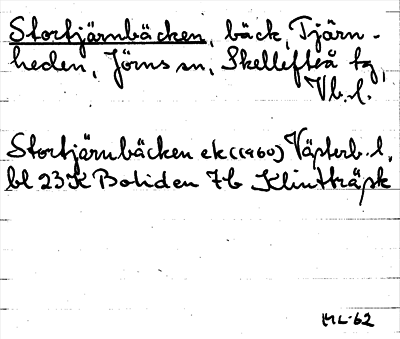 Stortjärnbäcken, bäck, Tjärn-
heden, Jörns sn, Skellefteå tg,
Vb. l.
Stortjärnbäcken ek (1960) Västerb. l.
bl 23K Boliden 7b Klintträsk
ML-62